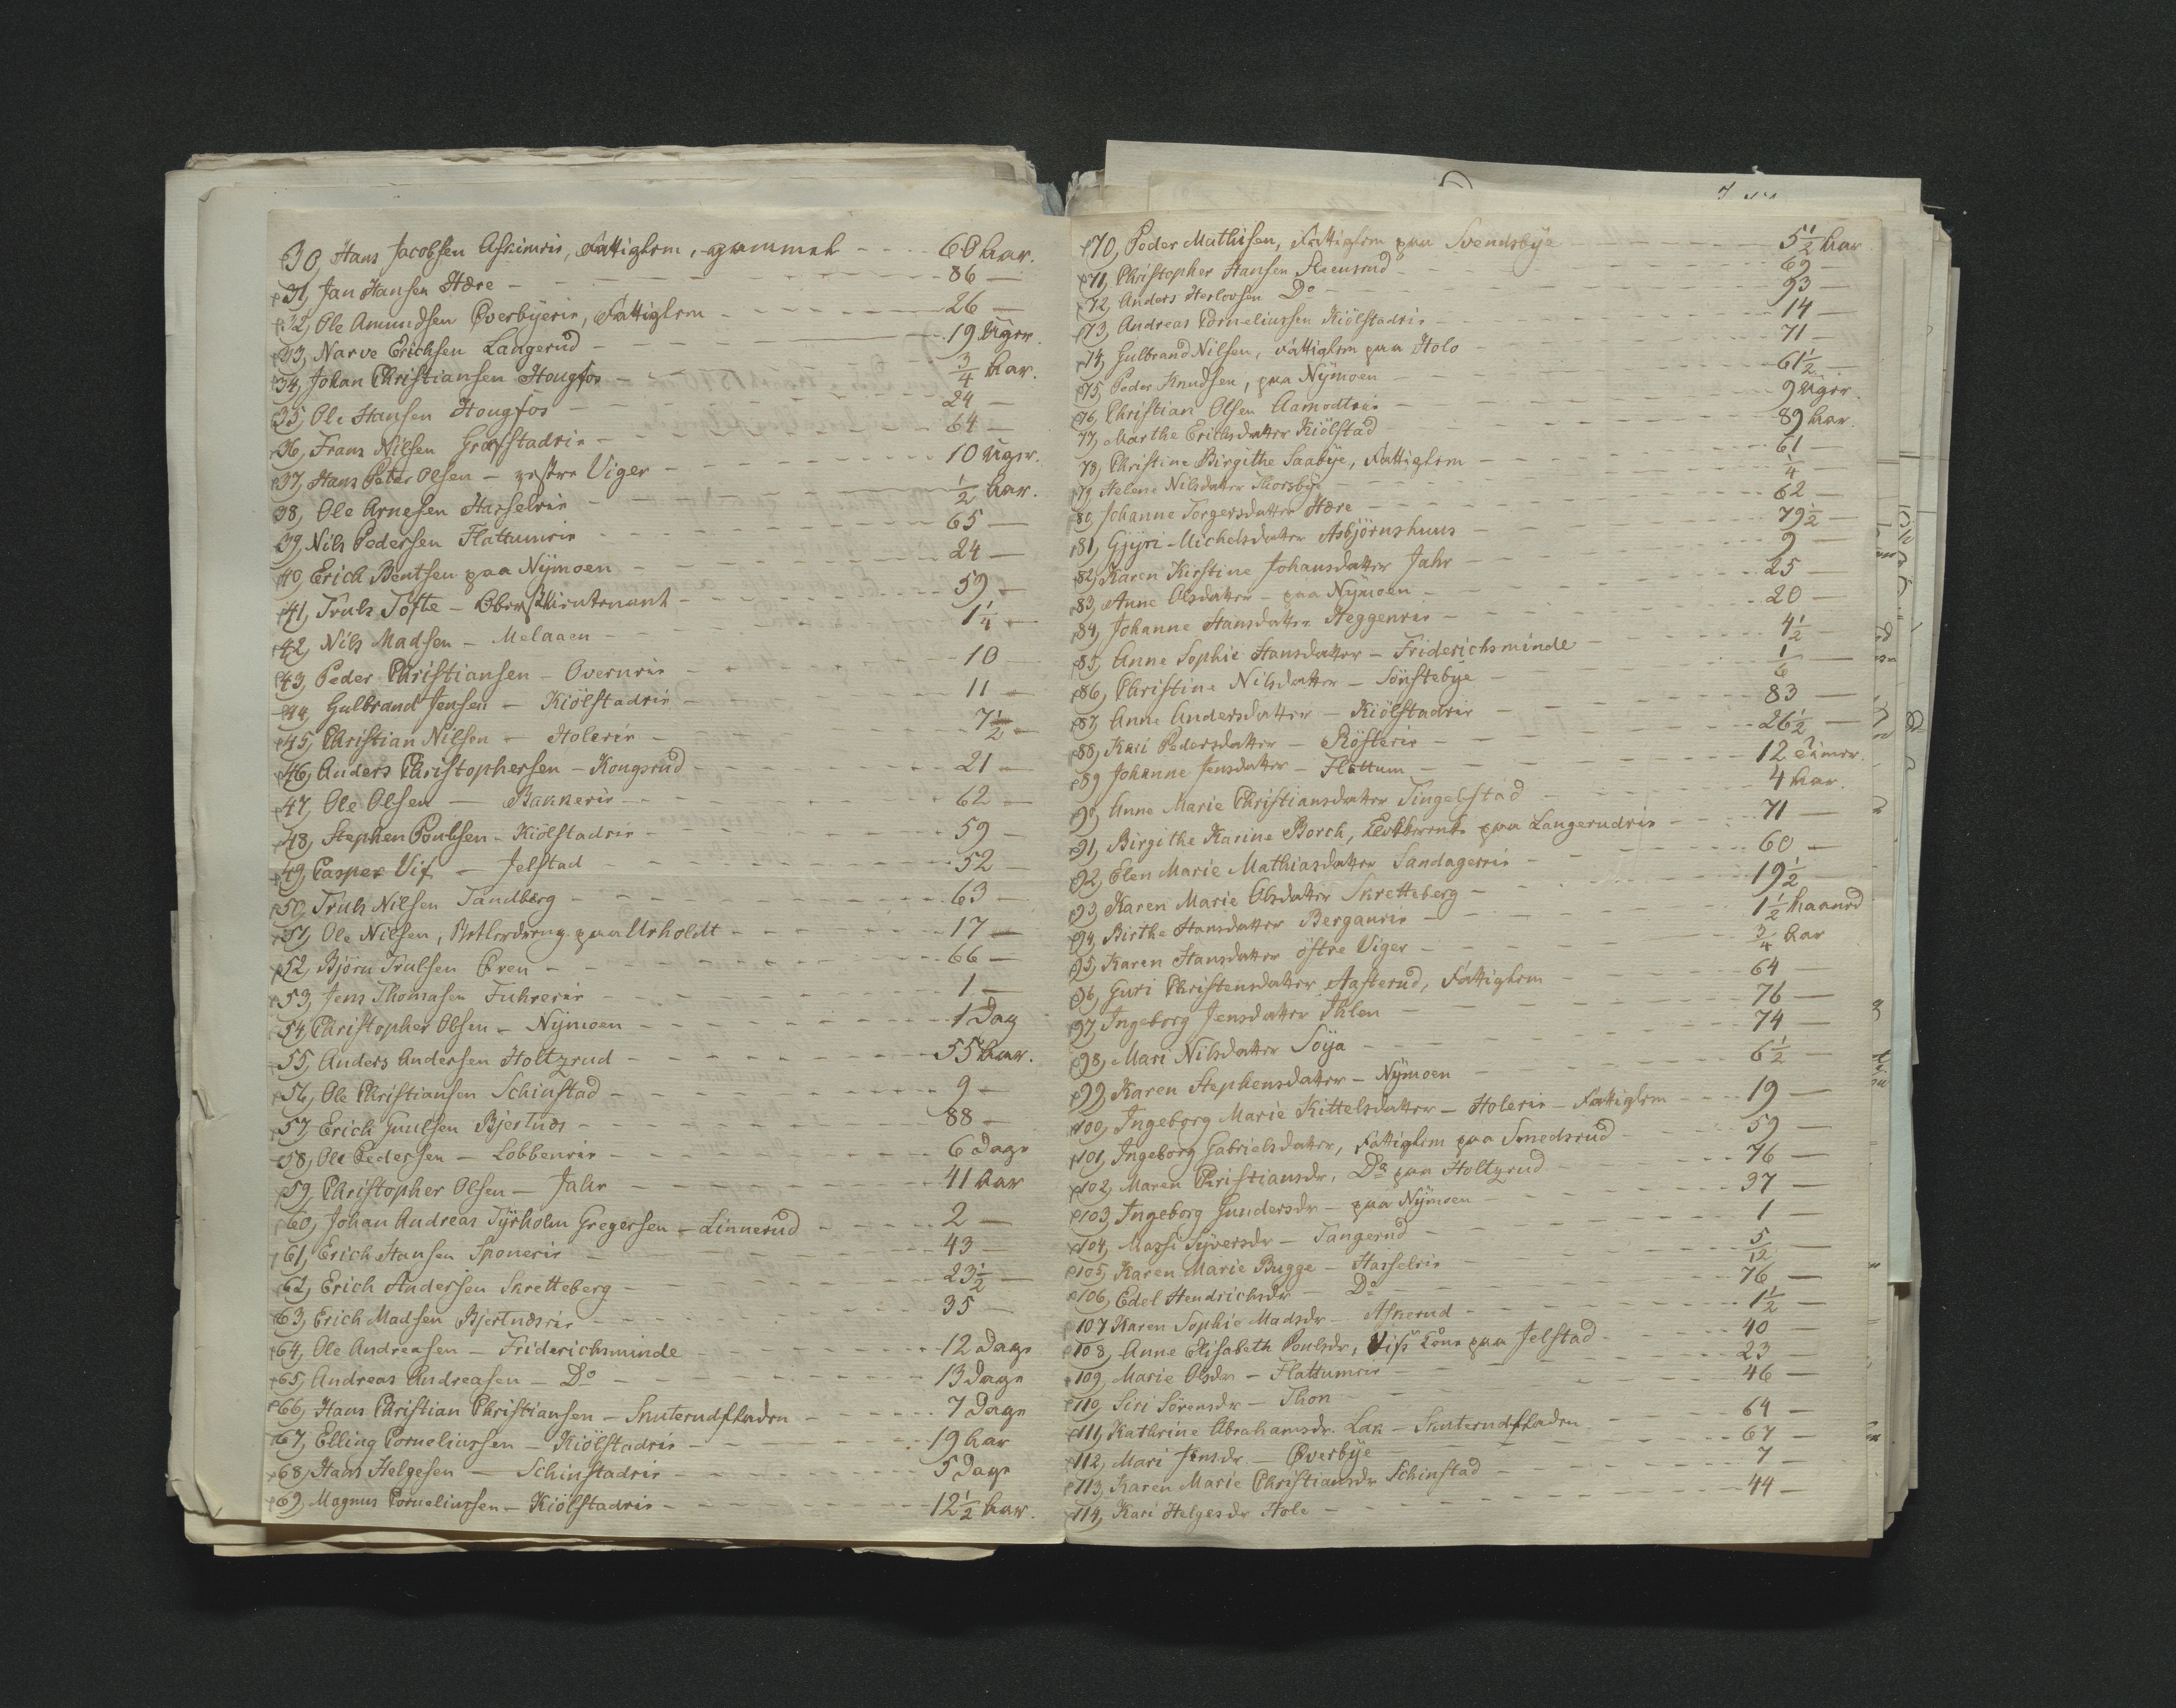 30, Hans Jacobsen Askimeie, Fattiglem, gammel - - - 60 Aar.
31, Jan Hansen Hære - - - 86 —
32, Ole Amundsen Overbyeeie, Fattiglem - - - 26 —
33, Narve Erichsen Langerud - - - 19 Uger.
34, Johan Christiansen Hougfos - - - 3/4 Aar.
35, Ole Hansen Hougfos - - - 24 —
36, Frans Nilsen Grafstadeie - - - 64 —
37, Hans Peter Olsen - vestre Viger - - - 10 Uger.
38, Ole Arnesen Hasseleie - - - 1/2 Aar.
39, Nils Pedersen Flattumeie - - - 65 —
40, Erich Bentsen paa Nÿmoen - - - 24 —
41, Truls Tofte - Oberstlieutenant - - - 59 —
42, Nils Madsen - Melaaen - - - 1 1/4 —
43, Peder Christiansen - Overneie - - - 10
44, Gulbrand Jensen - Kiölstadeie - - - 11 —
45, Christian Nilsen - Holeeie - - - 7 1/2 —
46, Anders Christophersen - Kongsrud - - - 21 —
47, Ole Olsen - Bakkeeie - - - 62 —
48, Stephen Poulsen - Kiölstadeie - - - 59 —
49, Casper Vif - Jelstad - - - 52 —
50, Truls Nilsen Tandberg - - - 63 —
51, Ole Nilsen, paa Urholdt - - - 17 —
52, Björn Trulsen Oren - - - 66 —
53, Jens Thomasen Fuhreeie - - - 1 —
54, Christopher Olsen - Nÿmoen - - - 1 Dag
55, Anders Andersen Holtzrud - - - 55 Aar.
56, Ole Christiansen Schinstad - - - 9 —
57, Erich Guulsen Bjertnæs - - - 88 —
58, Ole Pedersen - Lobbeneie - - - 6 Dage
59, Christopher Olsen - Jahr - - - 41 Aar
60, Johan Andreas Tÿrholm Gregersen - Linnerud - - - 2 —
61, Erich Hansen Sponeeie - - - 43 —
62, Erich Andersen Skretteberg - - - 23 1/2 —
63, Erich Madsen Bjertnæseie - - - 35 —
64, Ole Andreasen - Friderichsminde - - - 12 Dage
65, Andreas Andreasen - Do - - - 13 Dage
66, Hans Christian Christiansen - Snuterudfladen - - - 7 Dage
67, Elling Corneliussen - Kiölstadeie - - - 19 Aar
68, Hans Helgesen - Schinstadeie - - - 5 Dage
69, Magnus Corneliussen - Kiölstadeie - - - 12 1/2 Aar.
70, Peder Mathisen, Fattiglem paa Svendsbÿe - - - 5 1/2 Aar
71, Christopher Hansen Steensrud - - - 69 —
72, Anders Herlovsen Do - - - 93 —
73, Andreas Corneliussen Kiölstadeie - - - 14 —
74, Gulbrand Nilsen, Fattiglem paa Hole - - - 71 —
75, Peder Knudsen, paa Nÿmoen - - - 61 1/2 —
76, Christian Olsen Aamodteie - - - 9 Uger.
77, Marthe Erichsdatter Kiölstad - - - 89 Aar.
78, Christine Birgithe Saabÿe, Fattiglem - - - 61 —
79, Helene Nilsdatter Thorsbÿe - - - 1/4 —
80, Johanne Torgersdatter Hære - - - 62 —
81, Gjÿri Michelsdatter Asbjörnshuus - - - 79 1/2 —
82, Karen Kirstine Johansdatter Jahr - - - 9 —
83, Anne Olsdatter - paa Nÿmoen - - - 25 —
84, Johanne Hansdatter Heggeneie - - - 20 —
85, Anne Sophie Hansdatter - Friderichsminde - - - 4 1/2 —
86, Christine Nilsdatter - Sönstebÿe - - - 1/6 —
87, Anne Andersdatter - Kiölstadeie - - - 83 —
88, Kari Pedersdatter - Rösteeie - - - 26 1/2 —
89, Johanne Jensdatter - Flattum - - - 12 Timer.
90, Anne Marie Christiansdatter Tingelstad - - - 4 Aar.
91, Birgithe Karine Borch, paa Langerudeie - - - 71 —
92, Elen Marie Mathiasdatter Sandagereie - - - 60 —
93, Karen Marie Olsdatter Skretteberg - - - 19 1/2 —
94, Birthe Hansdatter Berganeie - - - 1 1/2 Maaned
95, Karen Hansdatter östre Viger - - - 3/4 Aar
96, Guri Christensdatter Aasterud, Fattiglem - - - 64 —
97, Ingeborg Jensdatter Ihlen - - - 76 —
98, Mari Nilsdatter Söya - - - 74 —
99, Karen Stephensdatter - Nÿmoen - - - 6 1/2 —
100, Ingeborg Marie Kittelsdatter - Holeeie - Fattiglem - - - 19 —
101, Ingeborg Gabrielsdatter, Fattiglem paa Smedsrud - - - 59 —
102, Maren Christiansdr, Do paa Holtzrud - - - 76 —
103, Ingeborg Gundersdr - paa Nÿmoen - - - 97 —
104, Massi Sÿversdr - Tangerud - - - 1 —
105, Karen Marie Bugge - Hasseleie - - - 5/12 —
106, Edel Hendrichsdr - Do - - - 76 —
107 Karen Sophie Madsdr - Askerud - - - 1 1/2 —
108, Anne Elisabeth Poulsdr, Vifs Kone paa Jelstad - - - 40 —
109, Marie Olsdr - Flattumeie - - - 23 —
110, Siri Sörensdr - Thon - - - 46 —
111, Kathrine Abrahamsdr. Lak - Snuterudfladen - - - 64 —
112, Mari Jensdr. - Overbÿe - - - 67 —
113, Karen Marie Christiansdr Schinstad - - - 7 —
114, Kari Helgesdr Hole - - - 44 —